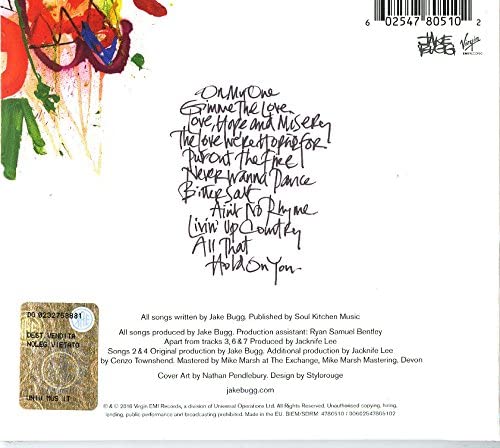 6 02547 80510 2
JAKE BUGG
Virgin
EMI RECORDS
On My One
Gimme The Love
Love, Hope and Misery
The Love We're Hoping For
Put Out The Fire
Never Wanna Dance
Bitter Salt
Ain't No Rhyme
Livin' Up Country
All That
Hold On You
All songs written by Jake Bugg. Published by Soul Kitchen Music
All songs produced by Jake Bugg. Production assistant: Ryan Samuel Bentley
Apart from tracks 3, 6 & 7 Produced by Jacknife Lee
Songs 2 & 4 Original production by Jake Bugg. Additional production by Jacknife Lee
by Cenzo Townshend. Mastered by Mike Marsh at The Exchange, Mike Marsh Mastering, Devon
Cover Art by Nathan Pendlebury. Design by Stylorouge
jakebugg.com
℗ & © 2016 Virgin EMI Records, a division of Universal Operations Ltd. All rights reserved. Unauthorised copying, hiring,
lending, public performance and broadcasting prohibited. Made in the EU. BIEM/SDRM 4780510 / 00602547805102
DG 0232758881
DEST. VENDITA
NOLEG. VIETATO
UNIV MUS IT